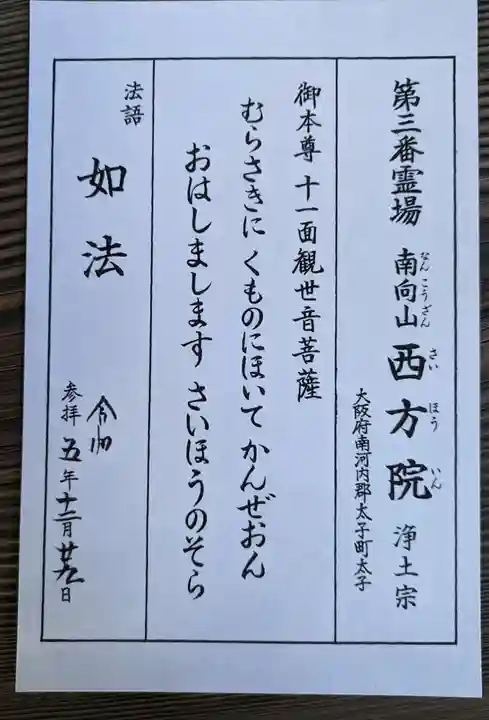 第三番霊場 南向山 西方院 浄土宗
なんこうざん さいほういん
大阪府南河内郡太子町太子
御本尊 十一面観世音菩薩
むらさきに くものにほいて かんぜおん
おはしまします さいほうのそら
法語 如法
令和
参拝 五年十二月廿九日